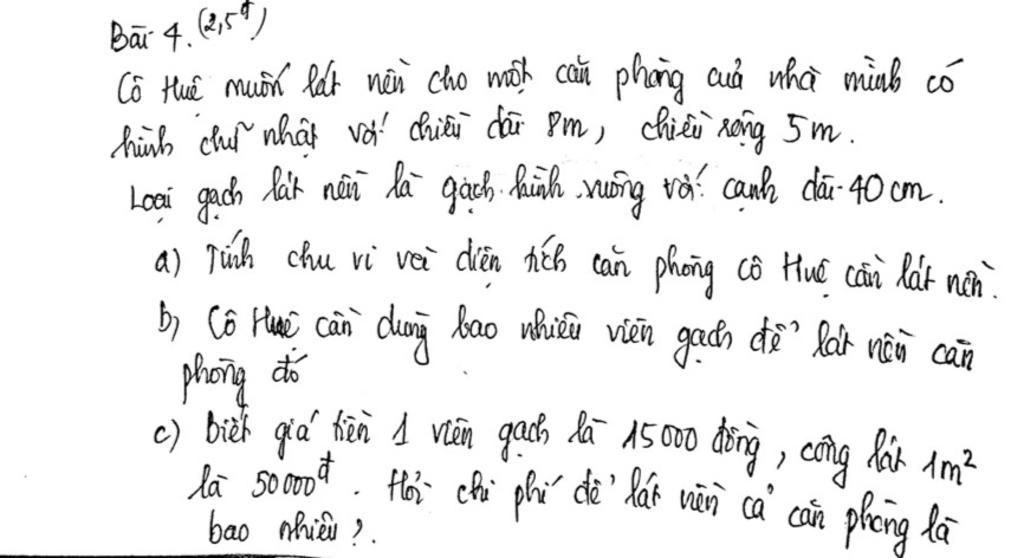 Bài 4. (2,5đ)
Cô Huê muốn lát nền cho một căn phòng của nhà mình có
hình chữ nhật với chiều dài 8m, chiều rộng 5m.
Loại gạch lát nền là gạch hình vuông với cạnh dài 40cm.
a) Tính chu vi và diện tích căn phòng cô Huê cần lát nền.
b) Cô Huê cần dùng bao nhiêu viên gạch để lát nền căn
phòng đó
c) Biết giá tiền 1 viên gạch là 15000 đồng, công lát 1m²
là 50000đ. Hỏi chi phí để lát nền cả căn phòng là
bao nhiêu?.